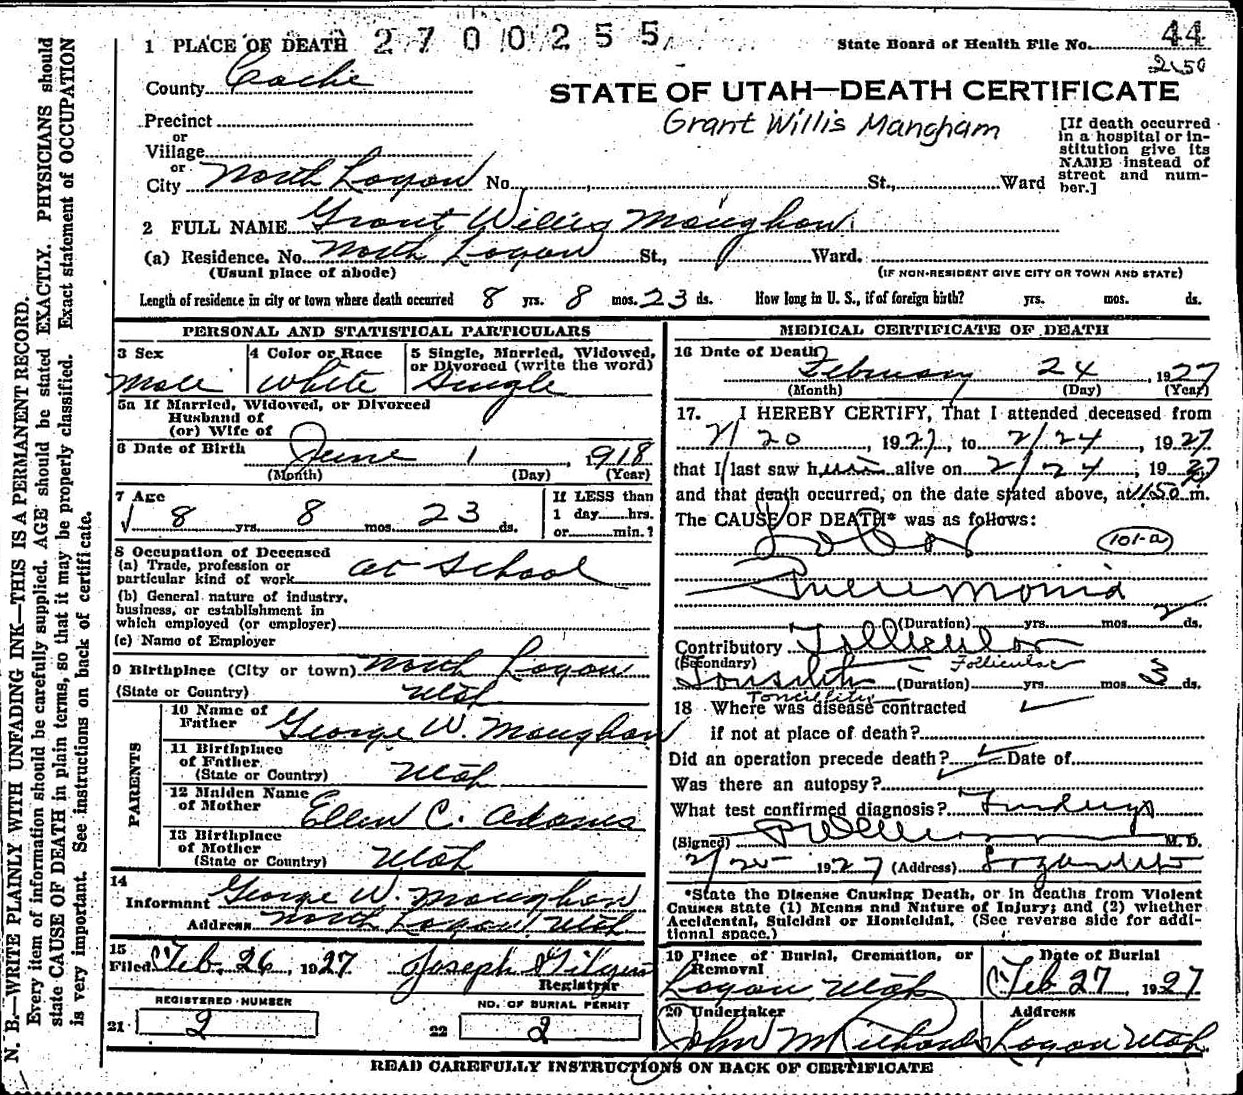 1 PLACE OF DEATH 2700255 State Board of Health File No. 44
2150
County Cache
STATE OF UTAH—DEATH CERTIFICATE
Grant Willis Mangham
Precinct
or
Village
or
City North Logan No. , St., Ward
[If death occurred in a hospital or institution give its NAME instead of street and number.]
2 FULL NAME Grant Willis Maughan
(a) Residence. No. North Logan St., Ward.
(Usual place of abode) (IF NON-RESIDENT GIVE CITY OR TOWN AND STATE)
Length of residence in city or town where death occurred 8 yrs. 8 mos. 23 ds. How long in U. S., if of foreign birth? yrs. mos. ds.
PERSONAL AND STATISTICAL PARTICULARS
3 Sex 4 Color or Race 5 Single, Married, Widowed, or Divorced (write the word)
Male White Single
5a If Married, Widowed, or Divorced
Husband of
(or) Wife of
6 Date of Birth June 1, 1918
(Month) (Day) (Year)
7 Age If LESS than
8 yrs. 8 mos. 23 ds. 1 day hrs.
or min.?
8 Occupation of Deceased
(a) Trade, profession or particular kind of work at School
(b) General nature of industry, business, or establishment in which employed (or employer)
(c) Name of Employer
9 Birthplace (City or town) North Logan
(State or Country) Utah
PARENTS
10 Name of Father George W. Maughan
11 Birthplace of Father (State or Country) Utah
12 Maiden Name of Mother Ellen C. Adams
13 Birthplace of Mother (State or Country) Utah
14
Informant George W. Maughan
Address North Logan, Utah
15
Filed Feb. 26, 1927 Joseph
Registrar
REGISTERED NUMBER NO. OF BURIAL PERMIT
21 2 22 2
MEDICAL CERTIFICATE OF DEATH
16 Date of Death February 24, 1927
(Month) (Day) (Year)
17. I HEREBY CERTIFY, That I attended deceased from
2/20, 1927, to 2/24, 1927
that I last saw him alive on 2/24, 1927
and that death occurred, on the date stated above, at 11:50 m.
The CAUSE OF DEATH* was as follows:
Lobar 101-a
Pneumonia
(Duration) yrs. mos. 2 ds.
Contributory Follicular
(Secondary) Follicular
Tonsilitis (Duration) yrs. mos. 3 ds.
Toncillitis
18 Where was disease contracted
if not at place of death?
Did an operation precede death? Date of
Was there an autopsy?
What test confirmed diagnosis? Findings
(Signed) M. D.
2/25 1927 (Address) Logan Utah
*State the Disease Causing Death, or in deaths from Violent Causes state (1) Means and Nature of Injury; and (2) whether Accidental, Suicidal or Homicidal. (See reverse side for additional space.)
19 Place of Burial, Cremation, or Removal Date of Burial
Logan Utah Feb 27, 1927
20 Undertaker Address
John M Richards Logan Utah.
READ CAREFULLY INSTRUCTIONS ON BACK OF CERTIFICATE
N. B.—WRITE PLAINLY WITH UNFADING INK—THIS IS A PERMANENT RECORD.
Every item of information should be carefully supplied. AGE should be stated EXACTLY. PHYSICIANS should
state CAUSE OF DEATH in plain terms, so that it may be properly classified. Exact statement of OCCUPATION
is very important. See instructions on back of certificate.